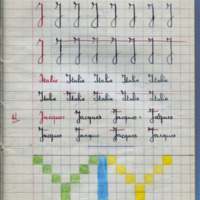 J J J J J J J
J J J J J J J J
Italie Italie Italie Italie Italie
Italie Italie Italie Italie Italie
Jacques Jacques Jacques Jacques
Jacques Jacques Jacques Jacques